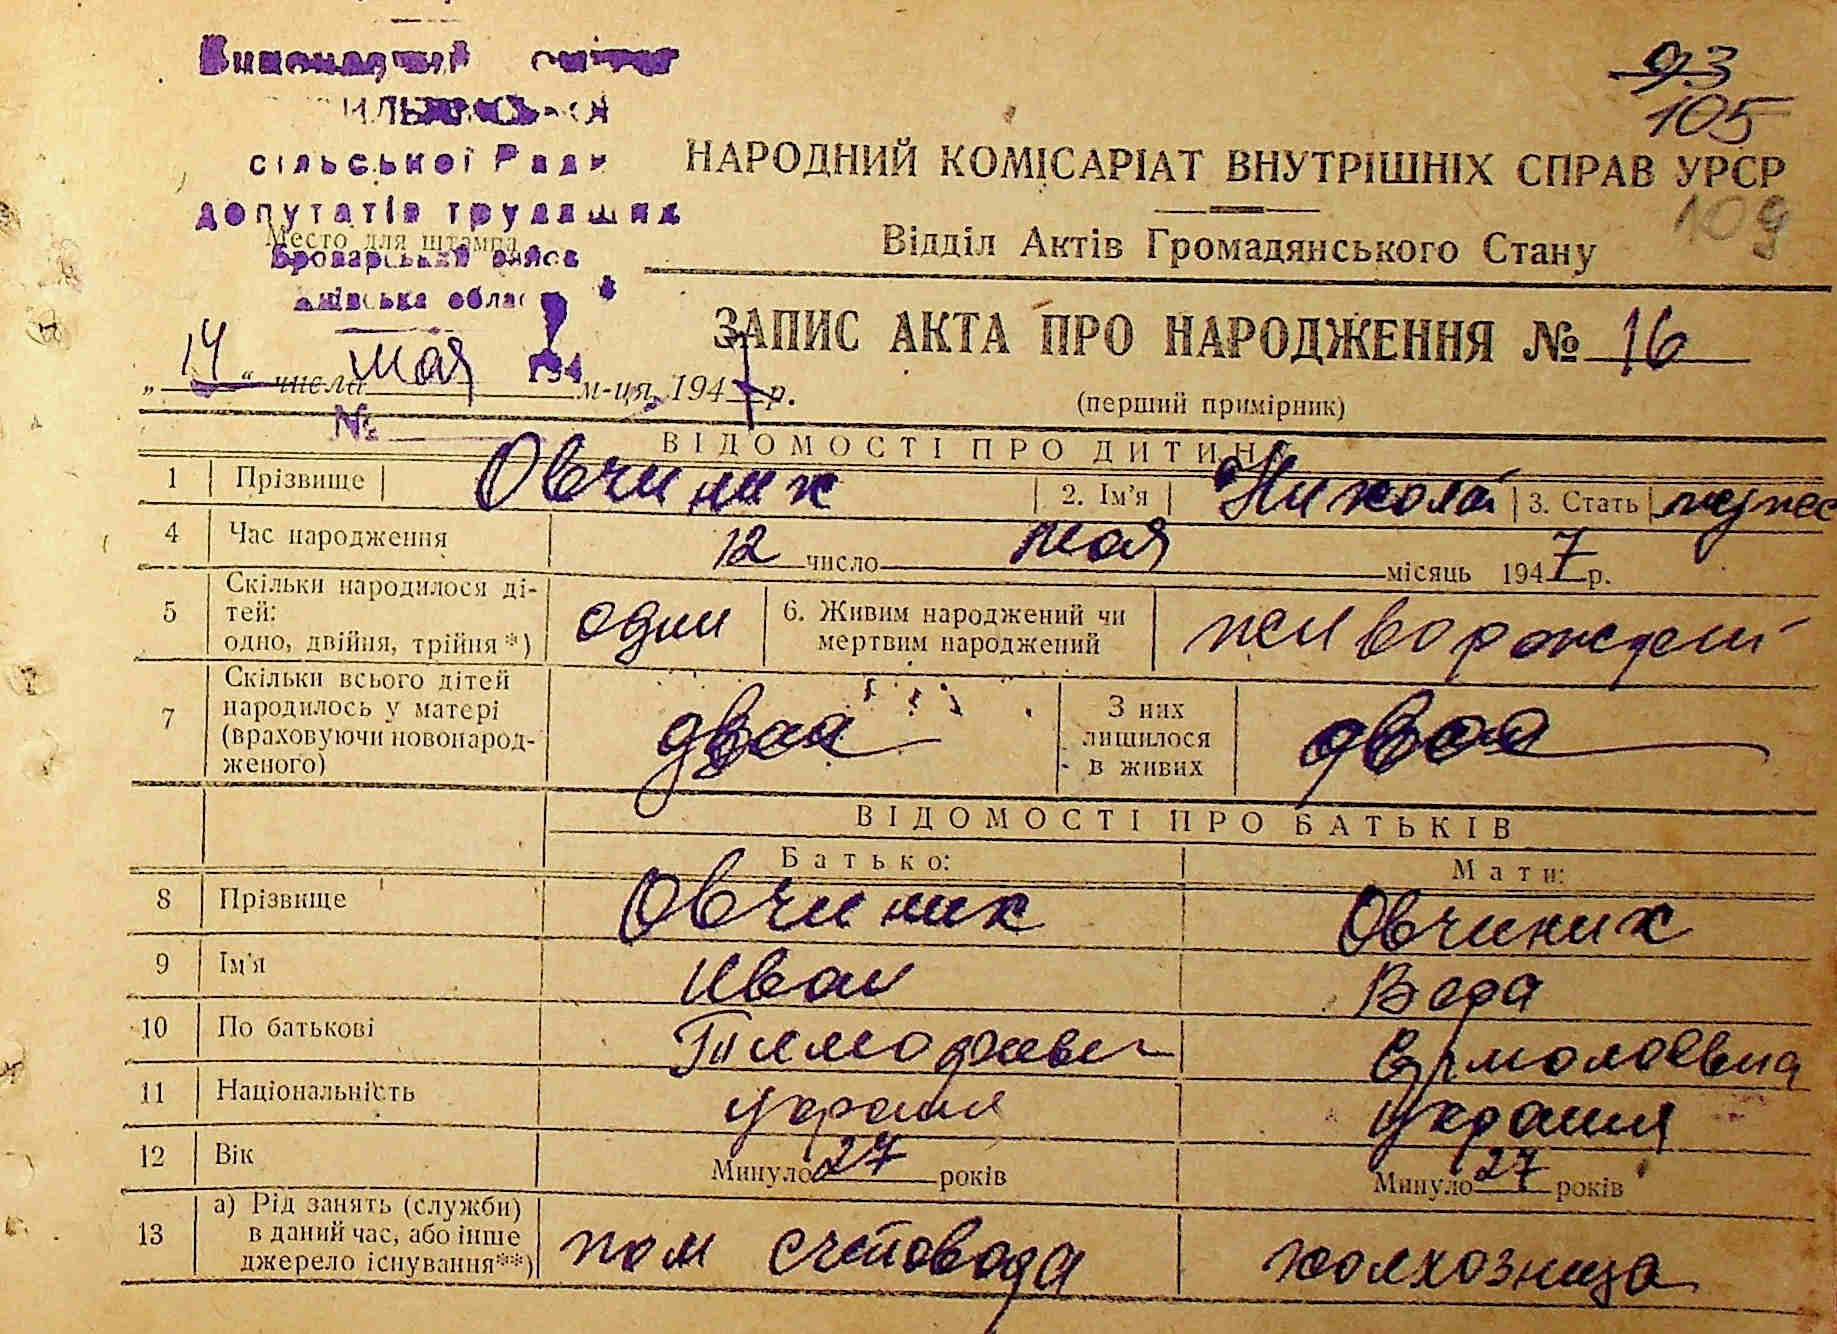 Виконавчий комітет
сільської Ради
депутатів трудящих
Место для штампа
Броварський район
Київська область
93
105
109
НАРОДНИЙ КОМІСАРІАТ ВНУТРІШНІХ СПРАВ УРСР
Відділ Актів Громадянського Стану
ЗАПИС АКТА ПРО НАРОДЖЕННЯ № 16
„ 14 “ числа мая м-ця, 1947 р.
(перший примірник)
№
ВІДОМОСТІ ПРО ДИТИНУ
1 Прізвище Овчиник 2. Ім’я Николай 3. Стать мужс
4 Час народження 12 число мая місяць 1947 р.
5 Скільки народилося ді-
тей:
одно, двійня, трійня*) один 6. Живим народжений чи
мертвим народжений живорожден
7 Скільки всього дітей
народилось у матері
(враховуючи новонарод-
женого) двоя З них
лишилося
в живих двоя
ВІДОМОСТІ ПРО БАТЬКІВ
Батько: Мати:
8 Прізвище Овчиник Овчиник
9 Ім’я Иван Вера
10 По батькові Тимофиевич Ермолаевна
11 Національність украин украин
12 Вік Минуло 27 років Минуло 27 років
13 а) Рід занять (служби)
в даний час, або інше
джерело існування**) пом счетовода колхозница